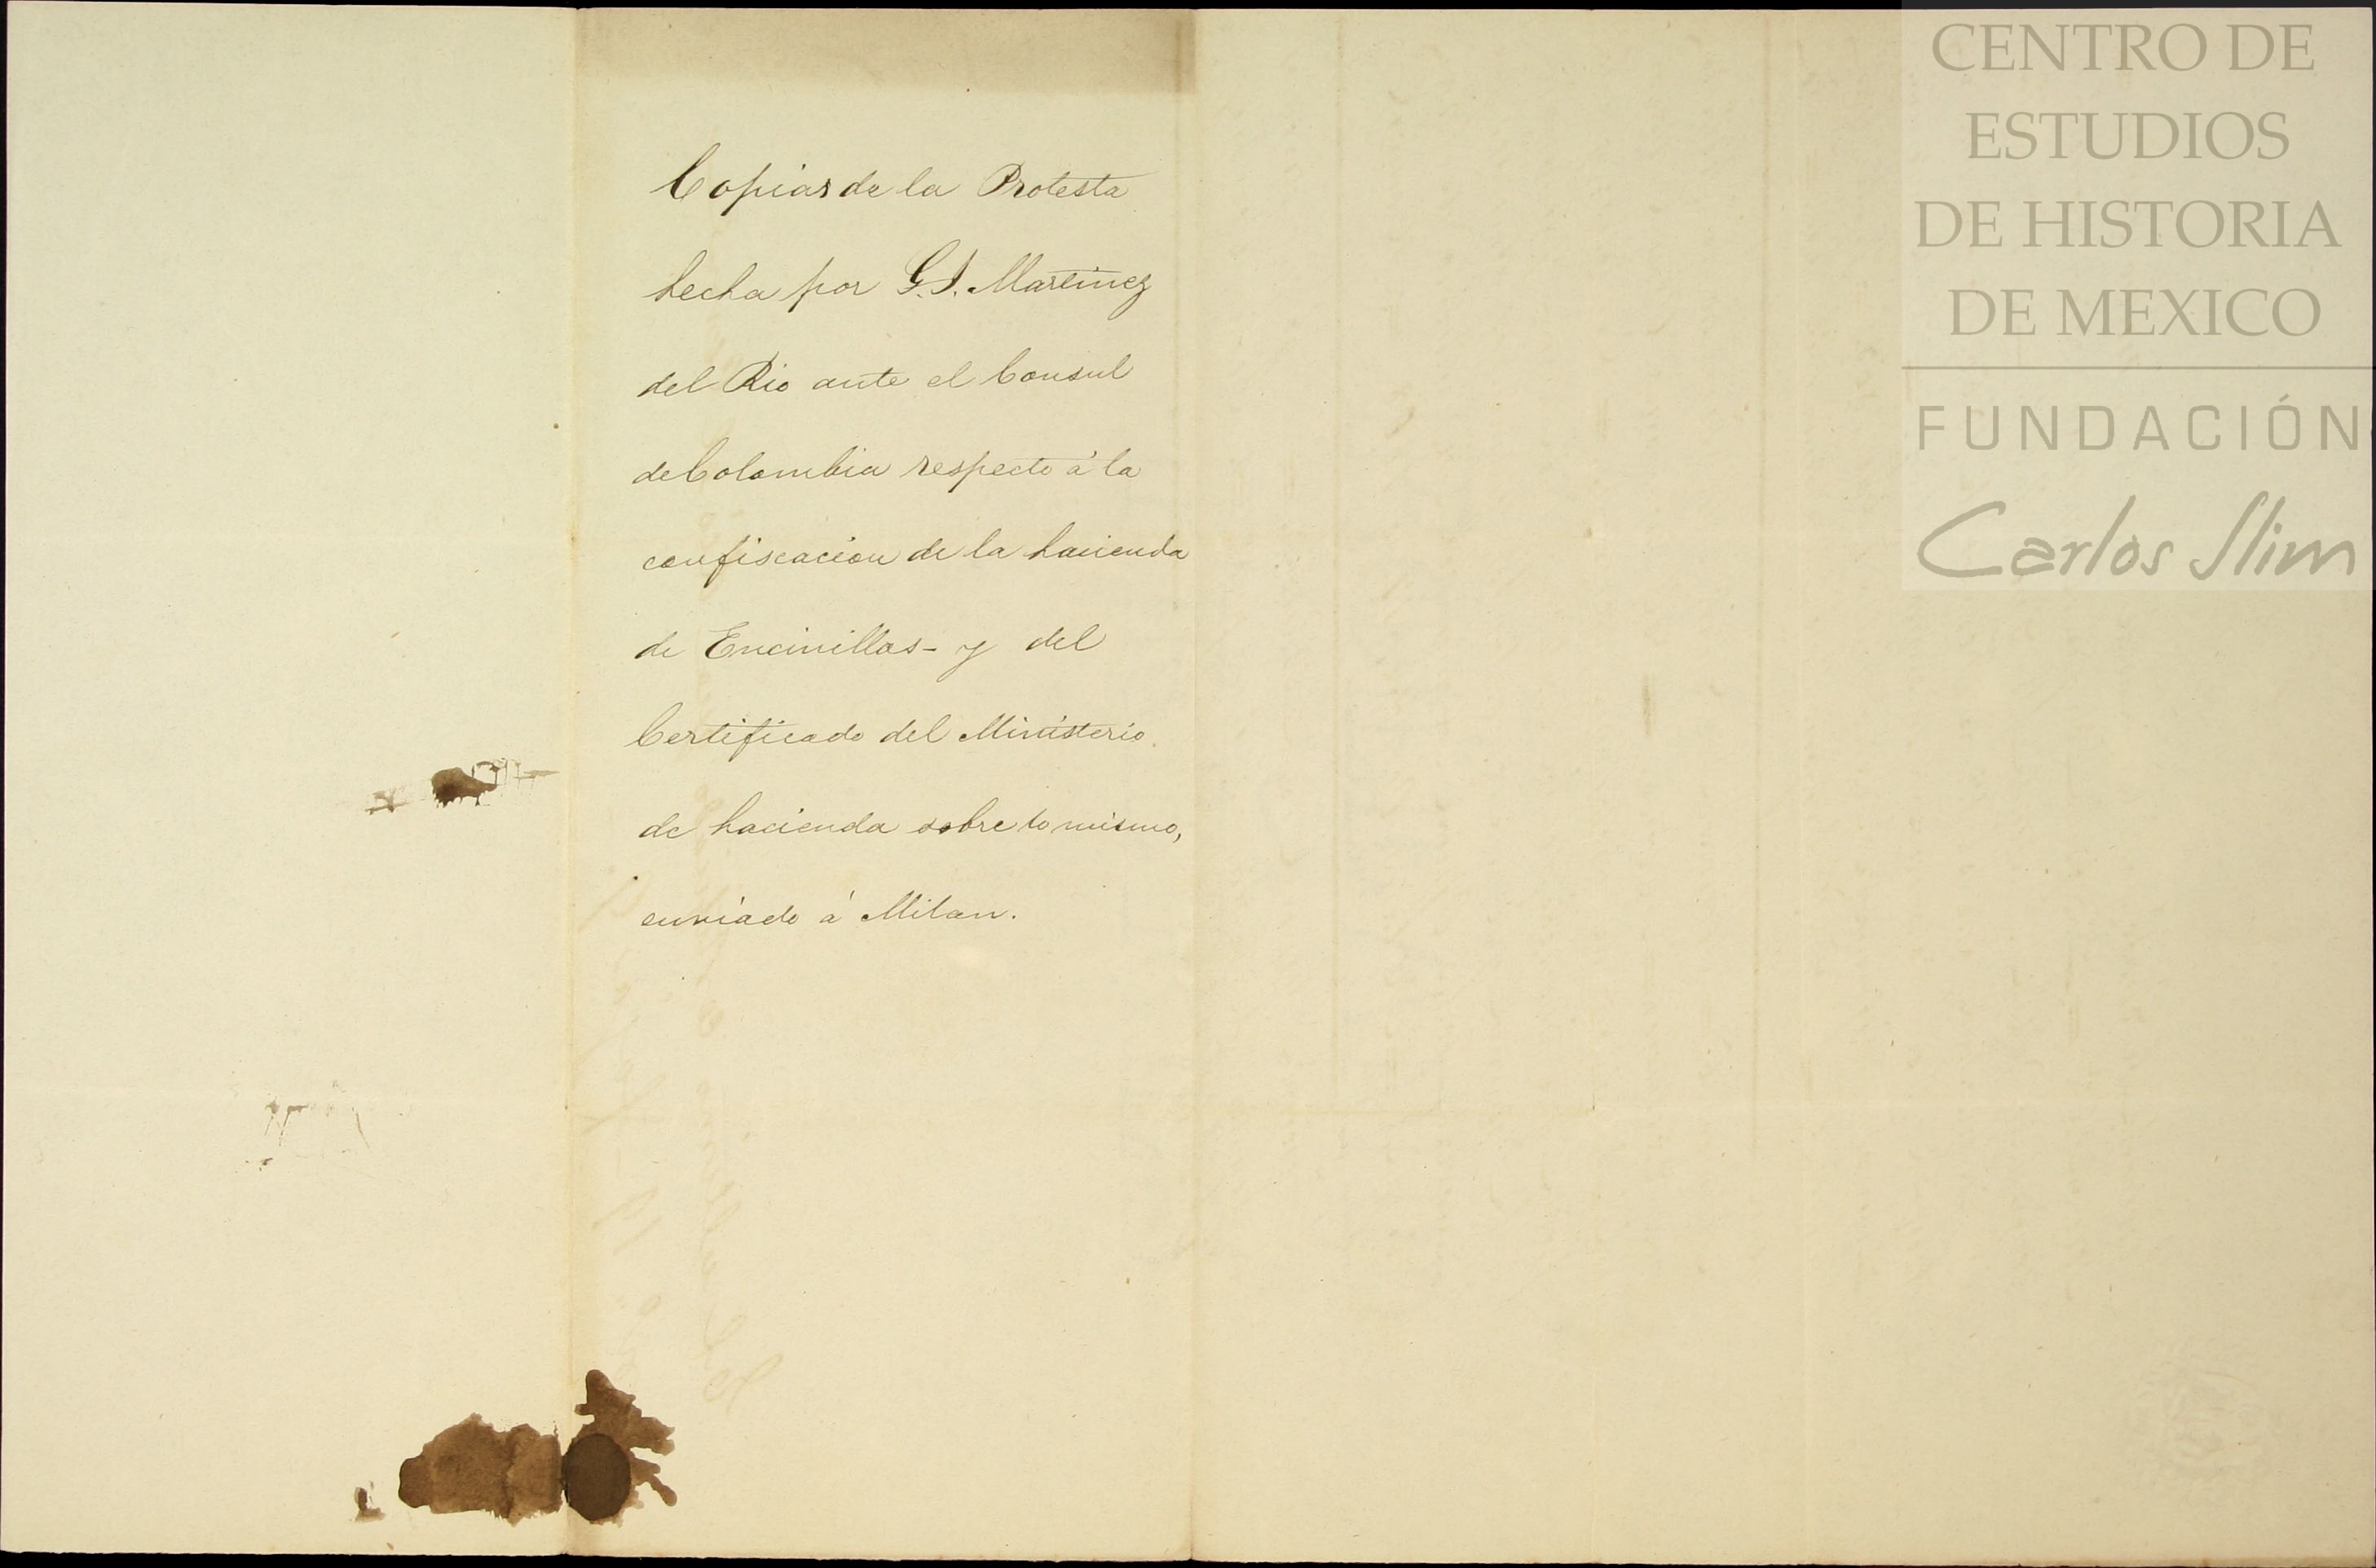 Copias de la Protesta
hecha por G. J. Martinez
del Rio ante el Consul
de Colombia respecto á la
confiscacion de la hacienda
de Encinillas - y del
Certificado del Ministerio
de hacienda sobre lo mismo,
enviado á Milan.
CENTRO DE
ESTUDIOS
DE HISTORIA
DE MEXICO
FUNDACIÓN
Carlos Slim